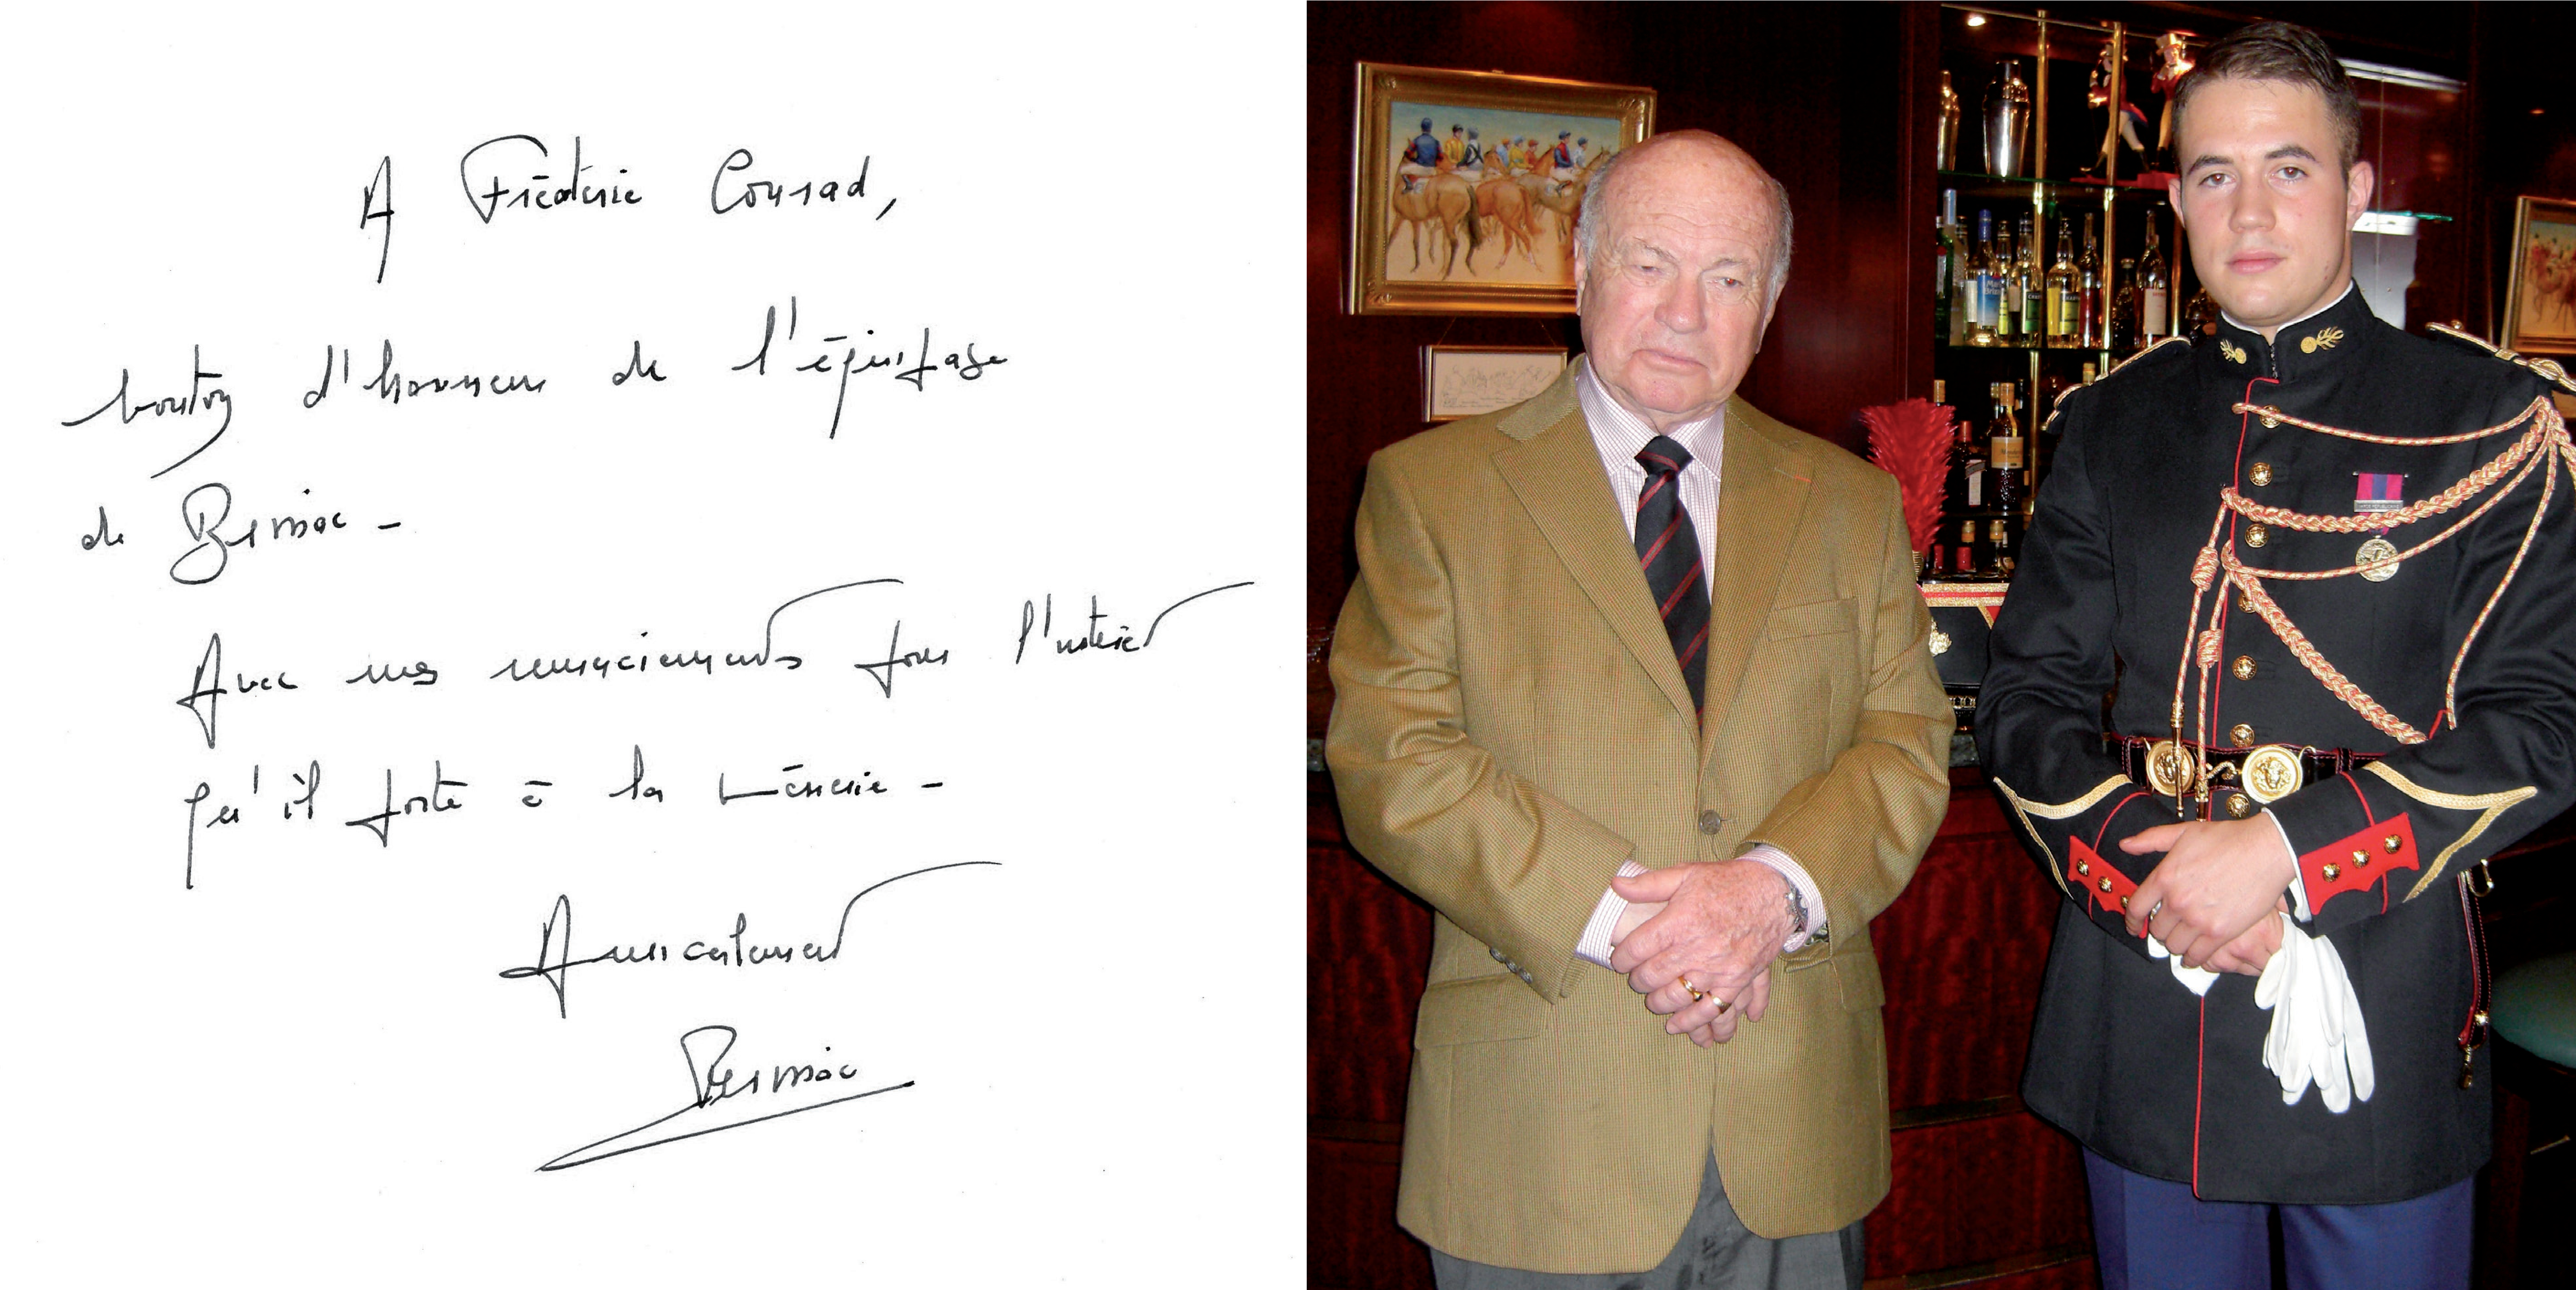 A Frédéric Conrad,
bouton d'honneur de l'équipage
de Bernac -
Avec mes remerciements pour l'intérêt
qu'il porte à la vénerie -
Amicalement
Bernac